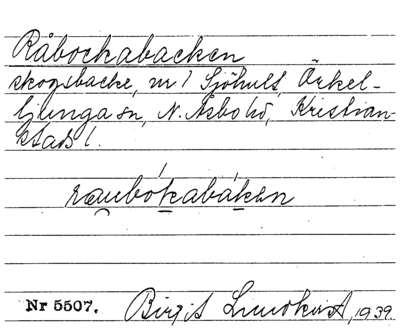 Råbockabacken
skogsbacke, vn 1 Sjöhult, Örkel-
ljunga sn, N. Åsbo hd, Kristian-
stads l.
raubókabáken
Nr 5507. Birgit Lundkvist, 1939.